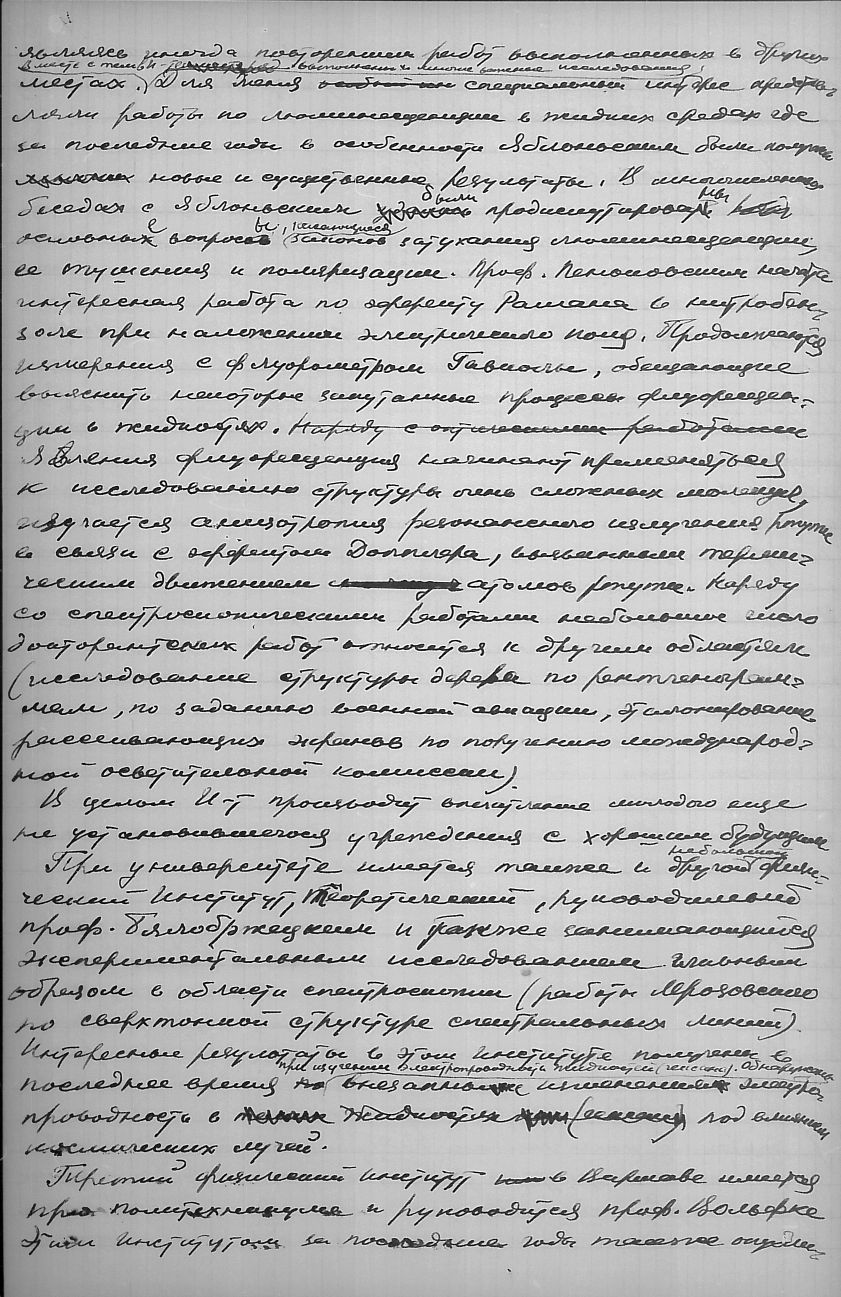 являясь иногда повторением работ выполненных в других
Вместе с тем выполнены и многие важные исследования,
местах. Для меня особый ин специальный интерес представ-
ляли работы по люминесценции в жидких средах где
за последние годы в особенности Яблоньским были получены
новые и существенные результаты. В многочисленных
были ны
беседах с Яблоньским продискутированы
е ы, касающиеся
основные вопросы законов затухания люминесценции,
ее тушения и поляризации. Проф. Пеньковским начата
интересная работа по эффекту Рамана в нитробен-
золе при наложении электрического поля. Продолжаются
измерения с флуорометром Гавиолы, обещающие
выяснить некоторые запутанные процессы флуоресцен-
ции в жидкостях. Наряду с оптическими работами
Явления флуоресценции начинают применяться
к исследованию структуры очень сложных молекул,
изучается анизотропия резонансного излучения ртути
в связи с эффектом Допплера, вызванным терми-
ческим движением атомов ртути. Наряду
со спектроскопическими работами небольшое число
докторантских работ относится к другим областям
(исследование структуры дерева по рентгенограм-
мам, по заданию военной авиации, эталонирование
рассеивающих экранов по поручению международ-
ной осветительной комиссии).
В целом И-т производит впечатление молодого еще
не установившегося учреждения с хорошим будущим
небольшой
При университете имеется также и другой физи-
ческий Институт, Теоретический, руководимый
проф. Бялобржецким и также занимающийся
экспериментальным исследованием главным
образом в области спектроскопии (работы Мрозовского
по сверхтонкой структуре спектральных линий).
Интересные результаты в этом институте получены в
при изучении электропроводности жидкостей (гексана). Обнаружены
последнее время внезапные изменения электро-
проводность в жидкостях (гексане) под влиянием
космических лучей.
Третий физический институт в Варшаве имеется
при политехникуме и руководится проф. Вольфке
Этим институтом за последние годы также опубли-